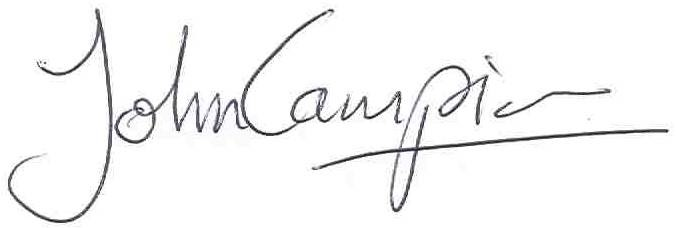 John Campion